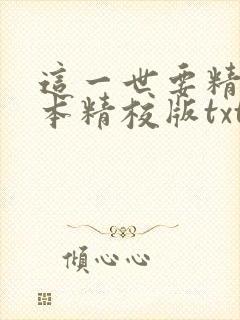 這一世要精
本精校版txt
傾心心